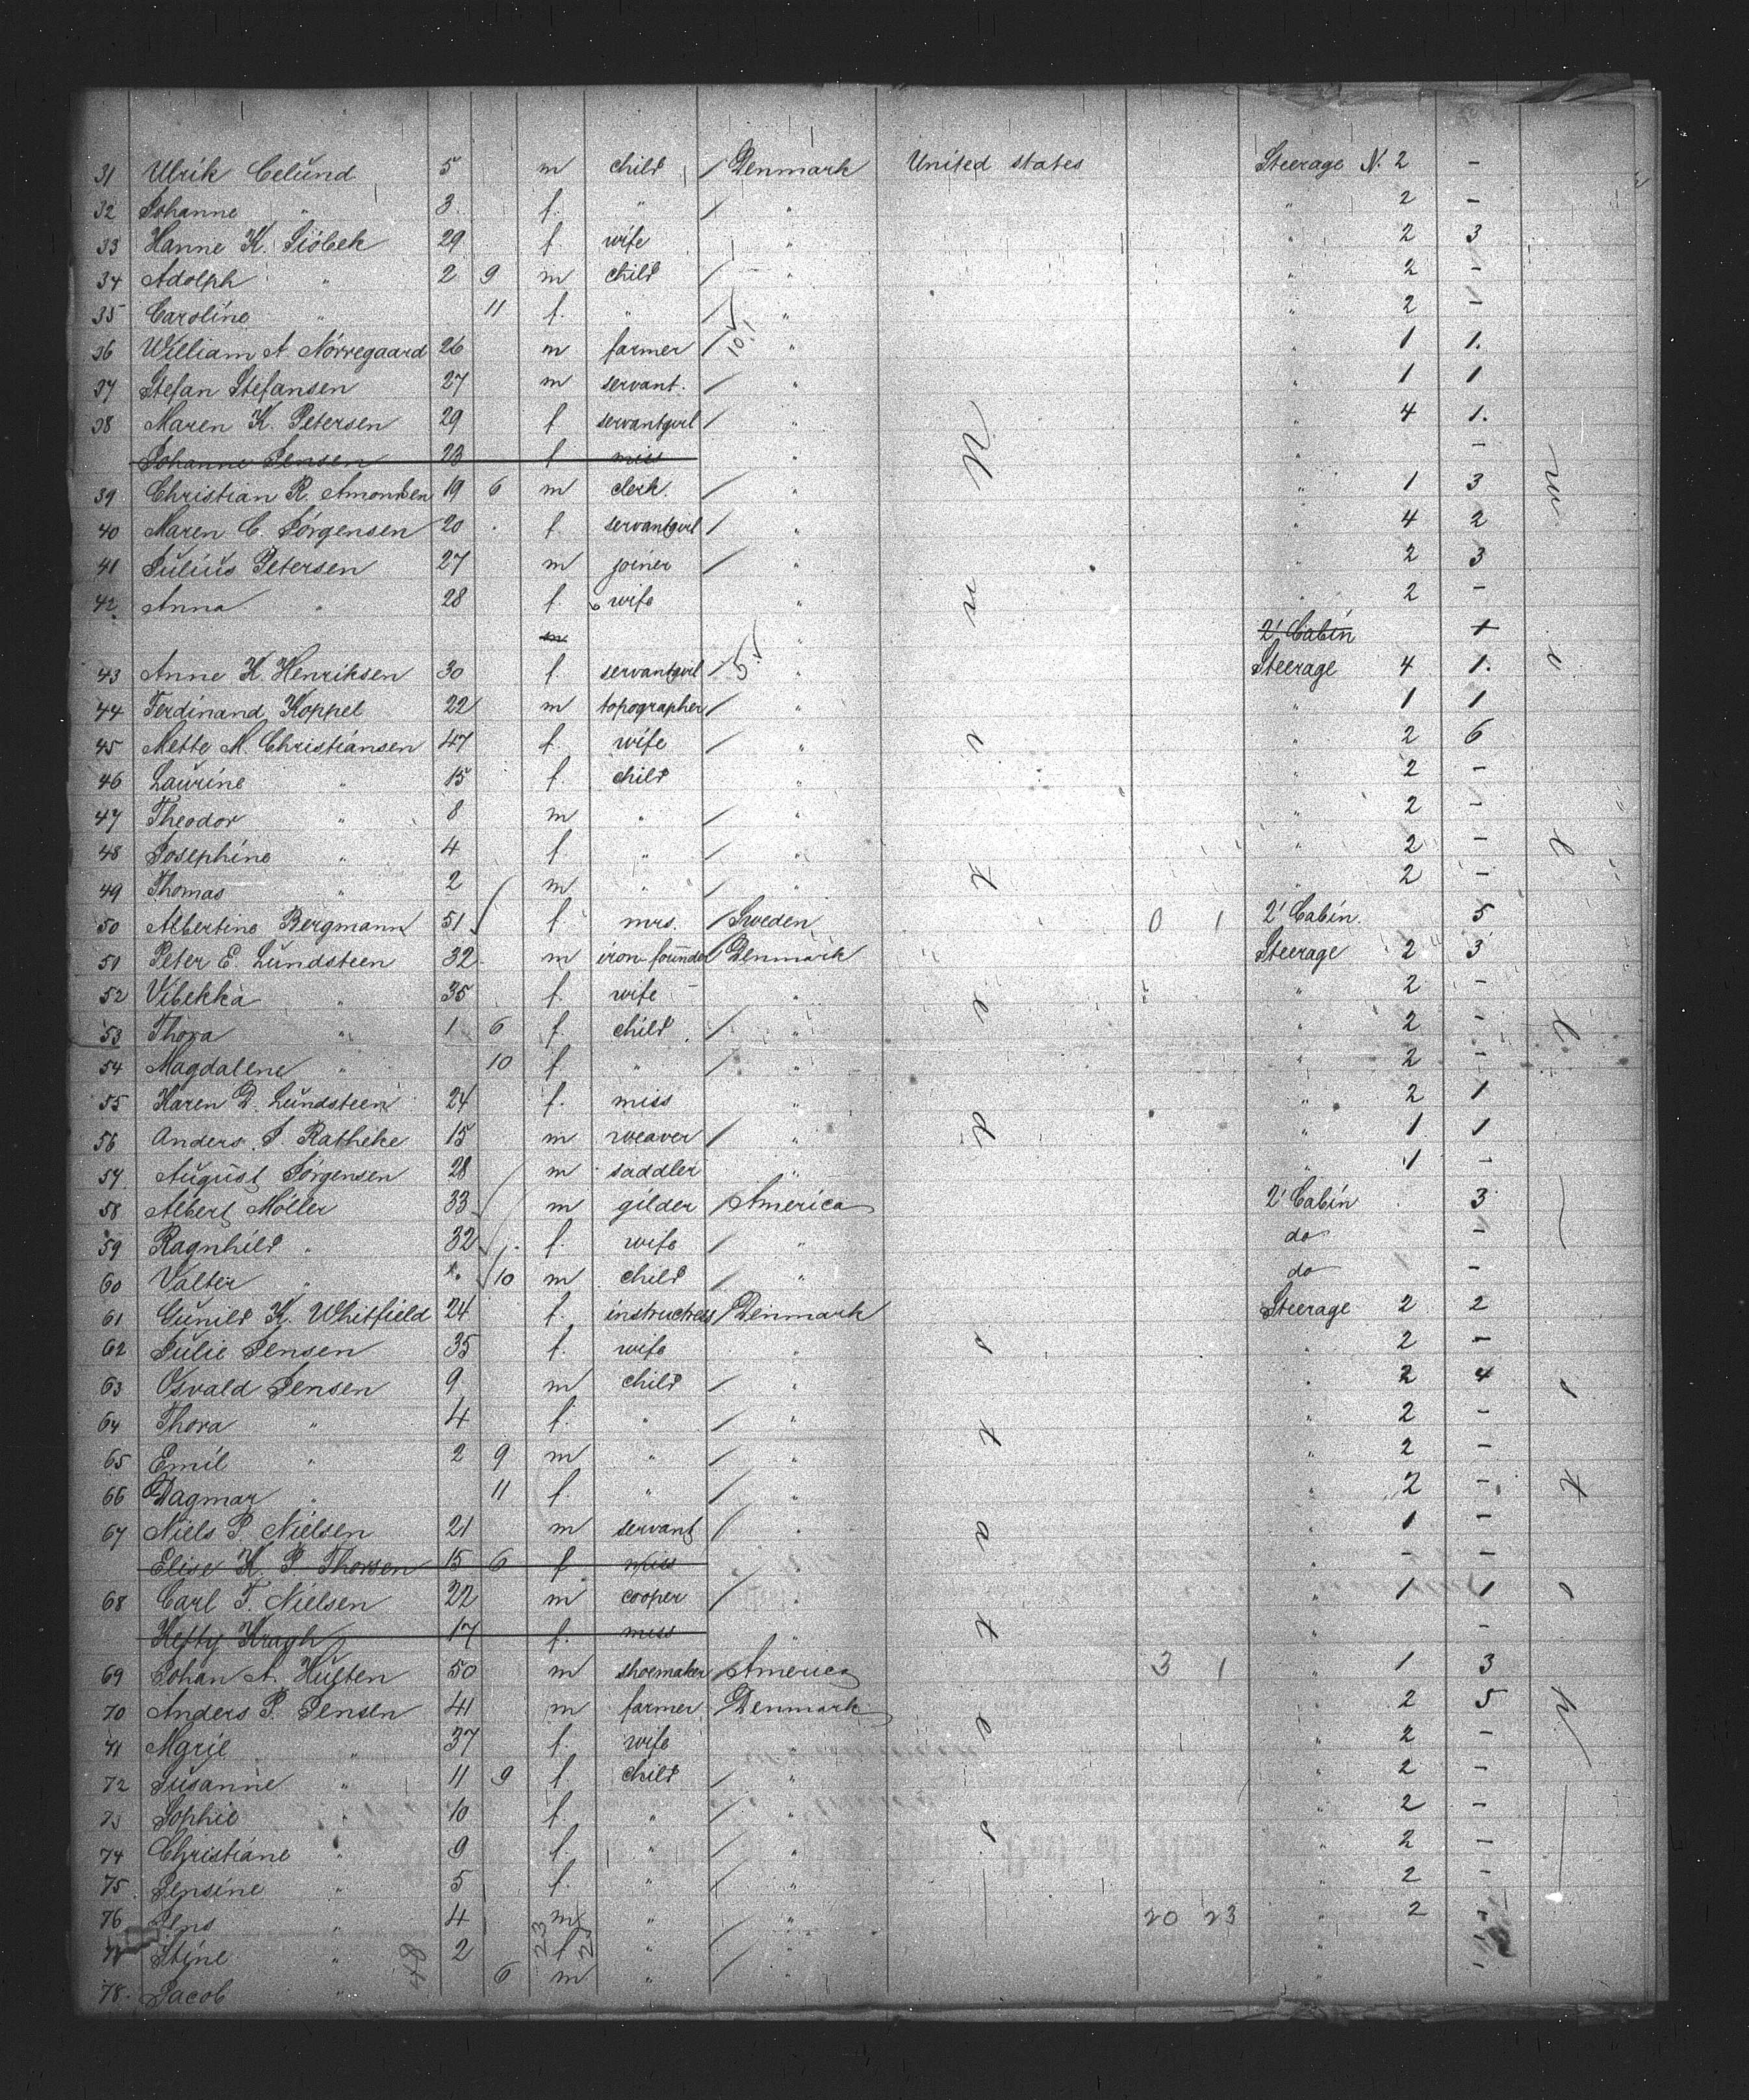 31 Ulrik Celund 5 m child / Denmark United states Steerage N. 2 -
32 Johanne " 3 f. " / " " 2 -
33 Hanne K. Siöbek 29 f. wife " " 2 3
34 Adolph " 2 9 m child / " " 2 -
35 Caroline " 11 f. " / " " 2 -
36 William A Nörregaard 26 m farmer / 10! " " 1 1.
37 Stefan Stefansen 27 m servant. / " " 1 1
38 Maren K. Petersen 29 f servantgirl / " " 4 1.
Johanne Jensen 23 f miss " " -
39 Christian R. Amondsen 19 6 m clerk. / " " 1 3
40 Maren C. Jörgensen 20 f. servantgirl / " " 4 2
41 Julius Petersen 27 m joiner / " " 2 3
42 Anna " 28 f. wife " " 2 -
m " 2! Cabin 1
43 Anne K. Henriksen 30 f. servantgirl / 5. " Steerage 4 1.
44 Ferdinand Koppel 22 m topographer / " " 1 1
45 Mette M. Christiansen 47 f. wife / " " 2 6
46 Laurine " 15 f. child " " 2 -
47 Theodor " 8 m " / " " 2 -
48 Josephine " 4 f. " / " " 2 -
49 Thomas " 2 m " / " " 2 -
50 Albertine Bergmann 51 f. mrs. / Sweden 0 1 2! Cabin. 5
51 Peter E. Lundsteen 32 m iron-founder / Denmark Steerage 2 3
52 Vibekka " 35 f. wife " " 2 -
53 Thora " 1 6 f. child / " " 2 -
54 Magdalene " 10 f. " / " " 2 -
55 Karen D. Lundsteen 24 f. miss " " 2 1
56 Anders J. Ratheke 15 m weaver / " " 1 1
57. August Jörgensen 28 m saddler " " 1 -
58 Albert Möller 33 m gilder / America 2! Cabin 3
59 Ragnhild " 32 f. wife / " do -
60 Valter " 10 m child / " do -
61 Gunild K. Whitfield 24 f. instructress / Denmark Steerage 2 2
62 Julie Jensen 35 f. wife " " 2 -
63 Osvald Jensen 9 m child / " " 2 4
64 Thora " 4 f. " / " " 2 -
65 Emil " 2 9 m " / " " 2 -
66 Dagmar " 11 f. " / " " 2 -
67 Niels P. Nielsen 21 m servant / " " 1 -
Elise K. P. Thorsen 15 6 f. miss " " - -
68 Carl F. Nielsen 22 m cooper / " " 1 1
Hefty Kragh 17 f. miss " " -
69 Johan A. Hulten 50 m shoemaker / America 3 1 " 1 3
70 Anders P. Jensen 41 m farmer Denmark " 2 5
71 Marie " 37 f. wife " " 2 -
72 Susanne " 11 9 f. child / " " 2 -
73 Sophie " 10 f. " / " " 2 -
74 Christiane " 9 f. " / " " 2 -
75 Jensine " 5 f. " / " " 2 -
76 Jens " 4 m " / " 20 23 " 2 -
77 Stine " 48 2 23 f. 25 " / " " -
78. Jacob " 6 m " / " " -
United states